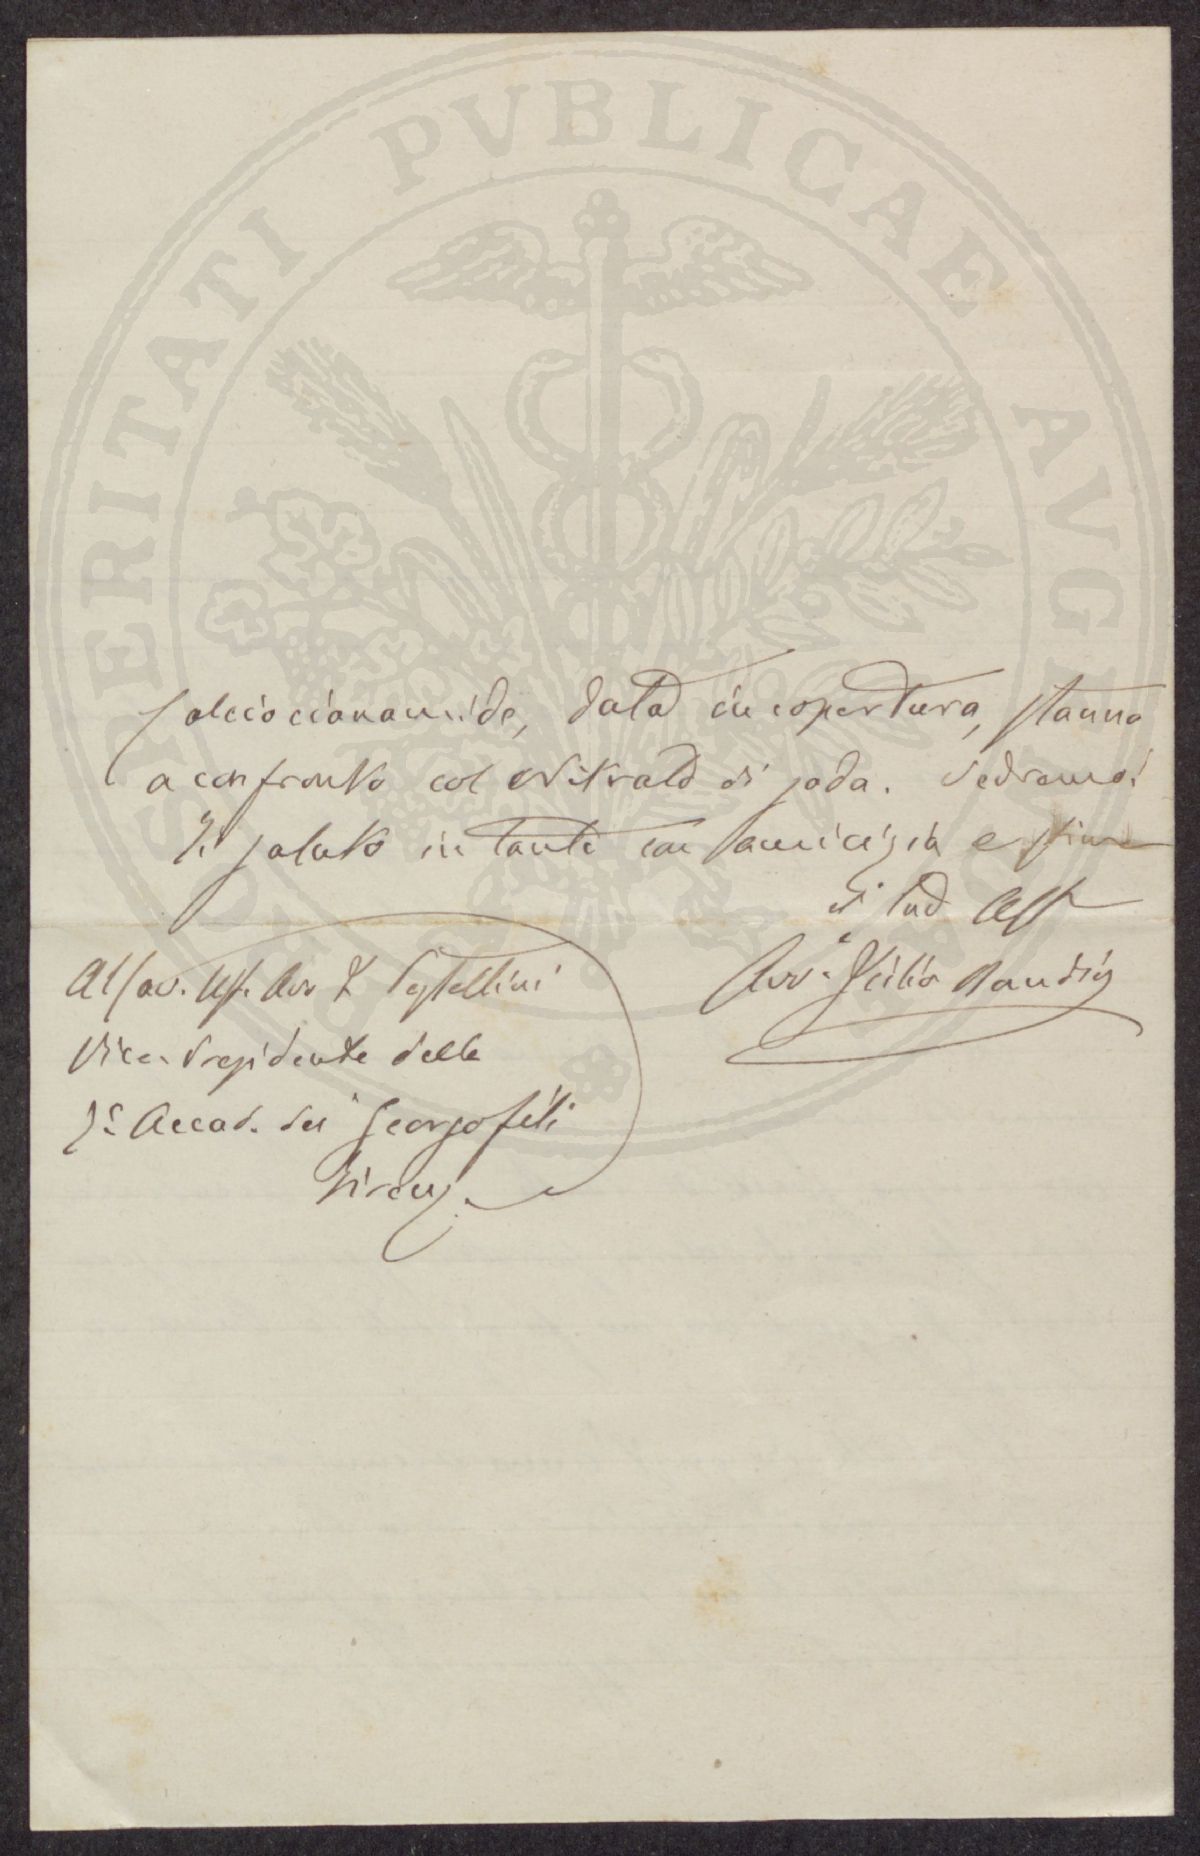 PROSPERITATI PVBLICAE AVGENDAE
Calciocianamide, data in copertura, stanno
a confronto col Nitrato di soda. Vedremo!
Ti saluto intanto con amicizia e stima
il tuo Aff
Avv. Icilio Bandini
Al Cav. Uff. Avv F Pestellini
Vice-Presidente della
Rᵉ Accad. dei Georgofili
Firenze